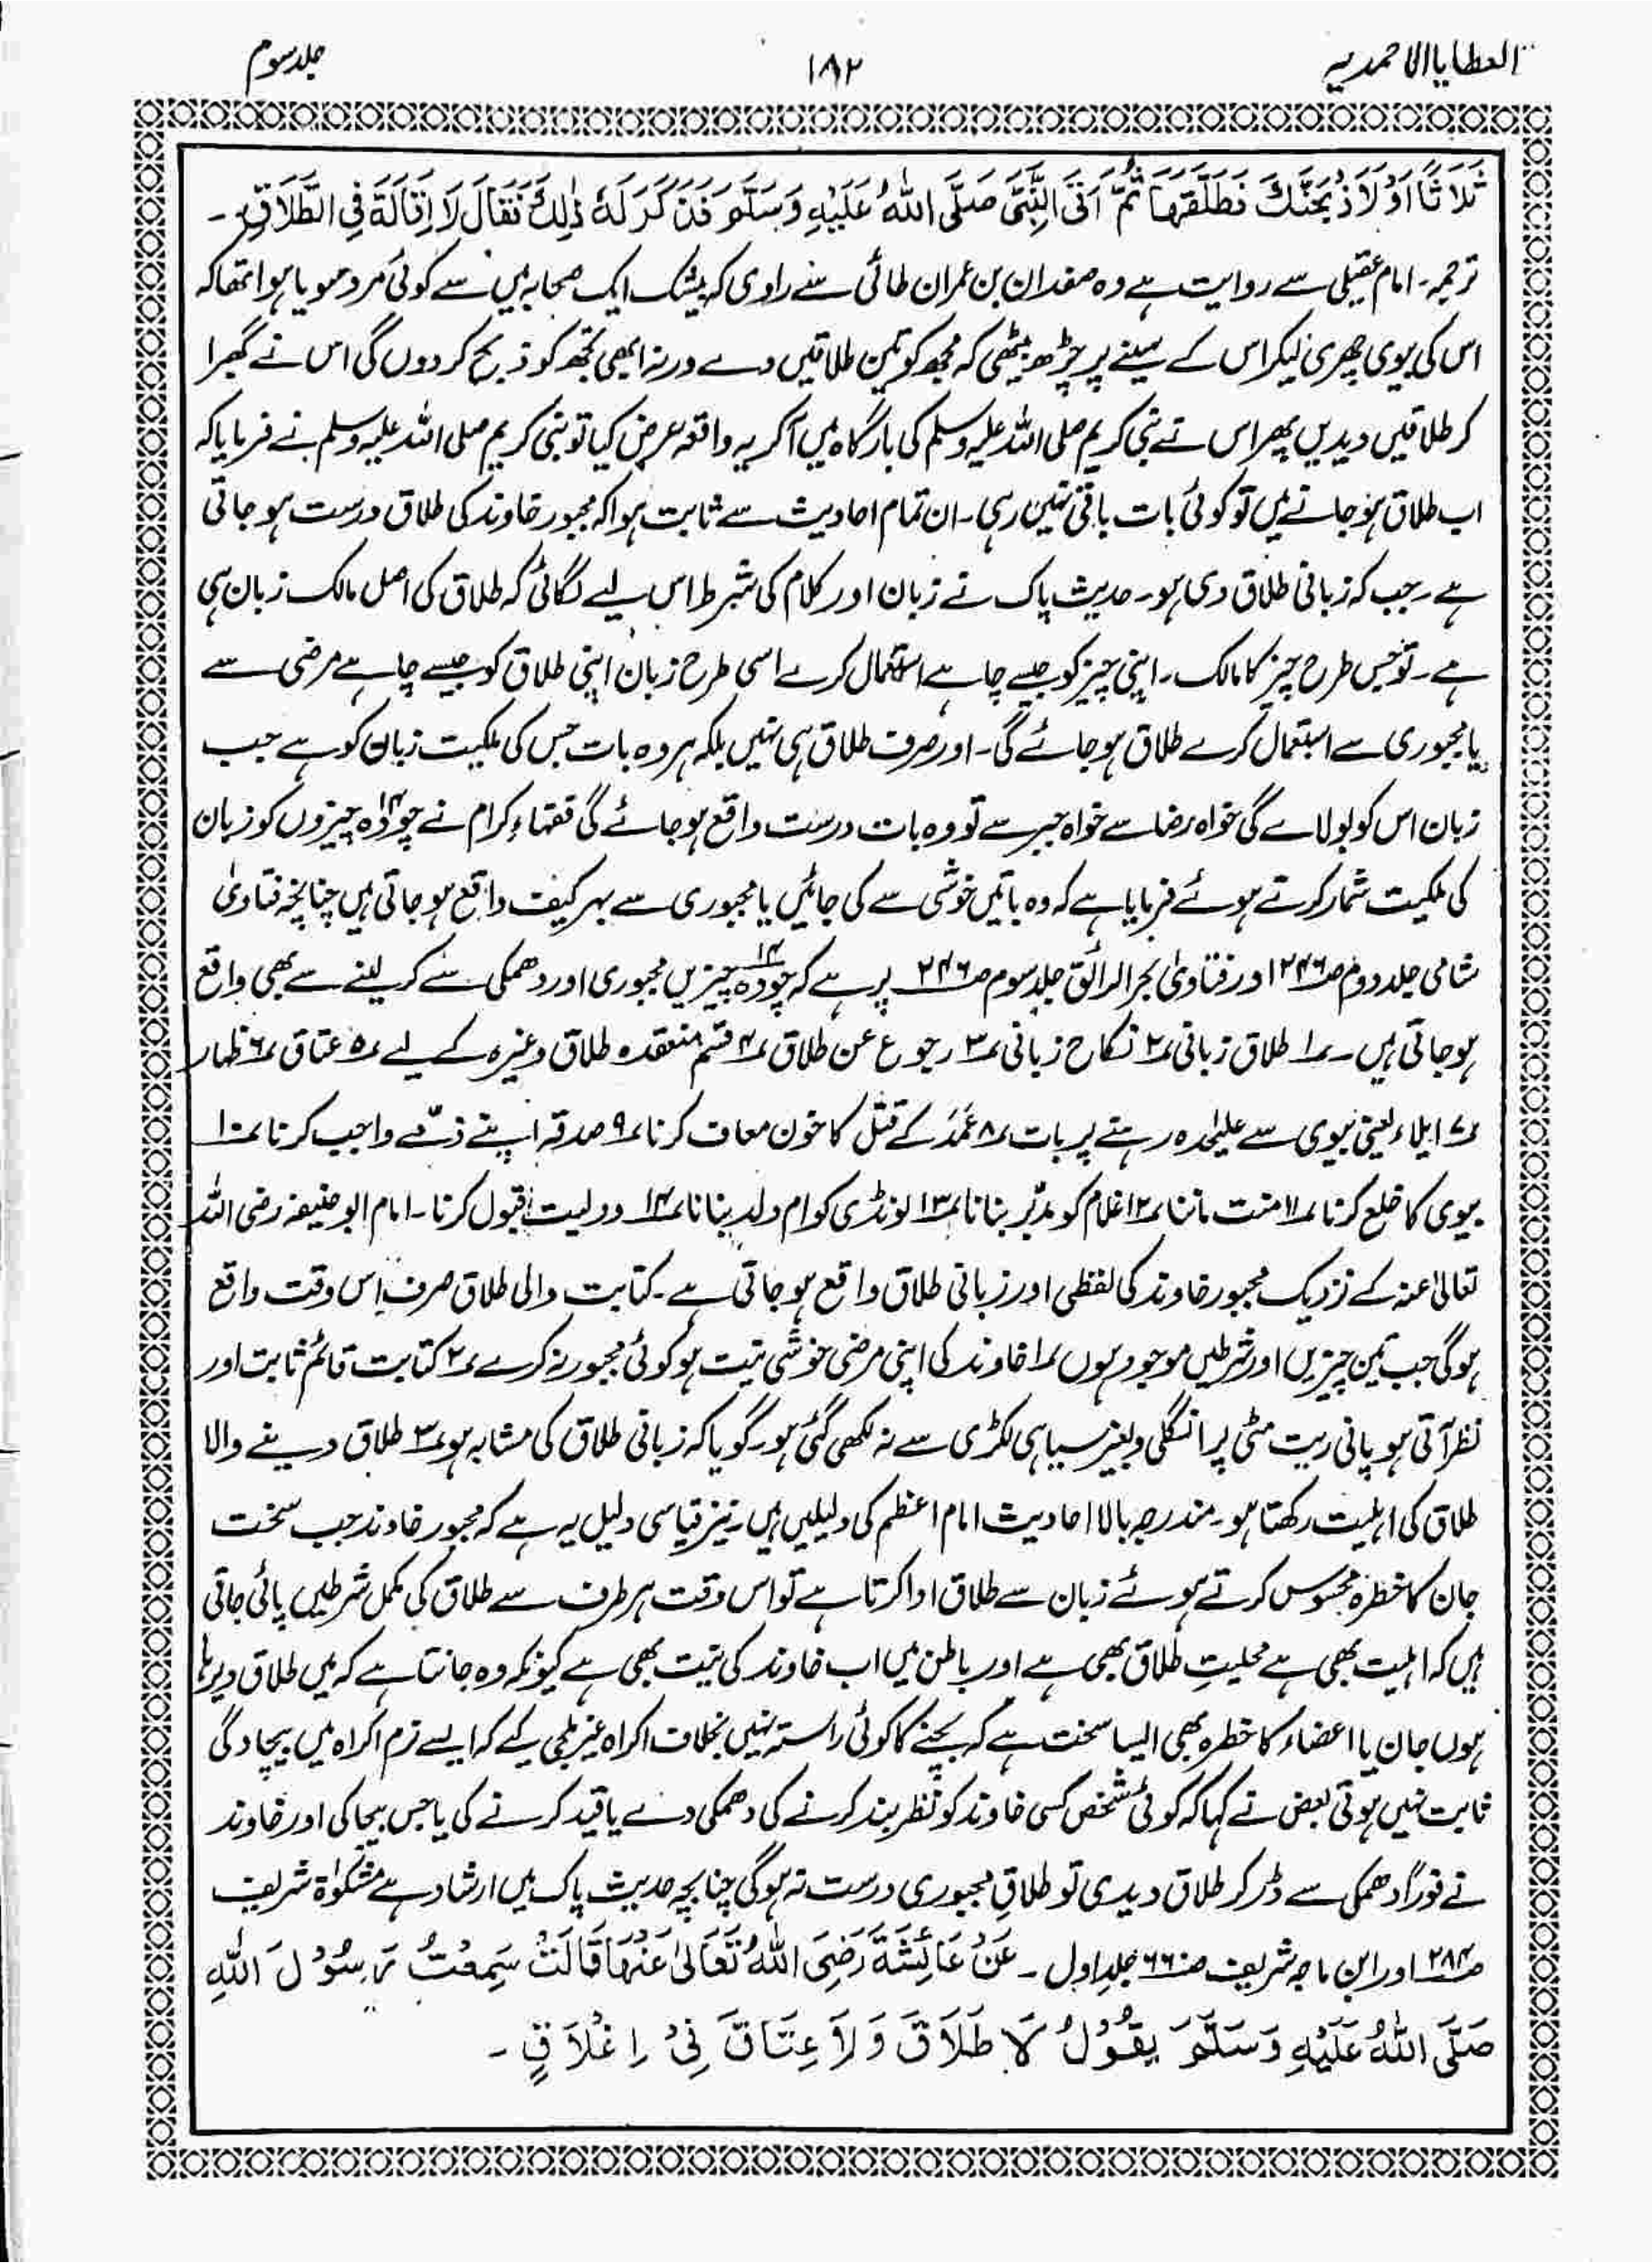 العطایا الاحمدیہ
۱۸۲
جلد سوم
ثَلَاثًا اَوْ لَاَذْبَحَنَّكَ فَطَلَّقَهَا ثُمَّ اَتَی النَّبِیَّ صَلَّی اللّٰهُ عَلَیْهِ وَسَلَّمَ فَذَکَرَ لَهٗ ذٰلِكَ فَقَالَ لَا اِقَالَةَ فِی الطَّلَاقِ۔
ترجمہ۔ امام عقیلی سے روایت ہے وہ صفدان بن عمران طائی سے راوی کہ بیشک ایک صحابہ میں سے کوئی مرد سویا ہوا تھا کہ
اس کی بیوی چھری لیکر اس کے سینے پر چڑھ بیٹھی کہ مجھ کو تین طلاقیں دے ورنہ ابھی تجھ کو ذبح کر دوں گی اس نے گھبرا
کر طلاقیں دیدیں پھر اس نے نبی کریم صلی اللہ علیہ وسلم کی بارگاہ میں آکر یہ واقعہ عرض کیا تو نبی کریم صلی اللہ علیہ وسلم نے فرمایا کہ
اب طلاق ہو جانے میں تو کوئی بات باقی نہیں رہی۔ ان تمام احادیث سے ثابت ہوا کہ مجبور خاوند کی طلاق درست ہو جاتی
ہے۔ جب کہ زبانی طلاق دی ہو۔ حدیث پاک نے زبان اور کلام کی شرط اس لیے لگائی کہ طلاق کی اصل مالک زبان ہی
ہے۔ تو جس طرح چیز کا مالک۔ اپنی چیز کو جیسے چاہے استعمال کرے اسی طرح زبان اپنی طلاق کو جیسے چاہے مرضی سے
یا مجبوری سے استعمال کرے طلاق ہو جائے گی۔ اور صرف طلاق ہی نہیں بلکہ ہر وہ بات جس کی ملکیت زبان کو ہے جب
زبان اس کو بولاے گی خواہ رضا سے خواہ جبر سے تو وہ بات درست واقع ہو جائے گی فقہاءِ کرام نے چودہ۱۴ چیزوں کو زبان
کی ملکیت شمار کرتے ہوئے فرمایا ہے کہ وہ باتیں خوشی سے کی جائیں یا مجبوری سے بہر کیف واقع ہو جاتی ہیں چنانچہ فتاویٰ
شامی جلد دوم صـ۲۴۶ اور فتاویٰ بحر الرائق جلد سوم صـ۲۴۶ پر ہے کہ چودہ۱۴ چیزیں مجبوری اور دھمکی سے کر لینے سے بھی واقع
ہو جاتی ہیں۔ ؁۱ طلاق زبانی ؁۲ نکاح زبانی ؁۳ رجوع عن طلاق ؁۴ قسم منعقدہ طلاق وغیرہ کے لیے ؁۵ عتاق ؁۶ ظہار
؁۷ ایلاء یعنی بیوی سے علیٰحدہ رہنے پر بات ؁۸ عَمَد کے قتل کا خون معاف کرنا ؁۹ صدقہ اپنے ذمّے واجب کرنا ؁۱۰
بیوی کا خلع کرنا ؁۱۱ منت ماننا ؁۱۲ غلام کو مدبّر بنانا ؁۱۳ لونڈی کو ام ولد بنانا ؁۱۴ ودلیت قبول کرنا۔ امام ابو حنیفہ رضی اللہ
تعالیٰ عنہ کے نزدیک مجبور خاوند کی لفظی اور زبانی طلاق واقع ہو جاتی ہے۔ کتابت والی طلاق صرف اِس وقت واقع
ہوگی جب تین چیزیں اور شرطیں موجود ہوں ؁۱ خاوند کی اپنی مرضی خوشی نیت ہو کوئی مجبور نہ کرے ؁۲ کتابت قائم ثابت اور
نظر آتی ہو پانی ریت مٹی پر انگلی و بغیر سیاہی لکڑی سے نہ لکھی گئی ہو۔ گویا کہ زبانی طلاق کی مشابہ ہو ؁۳ طلاق دینے والا
طلاق کی اہلیت رکھتا ہو۔ مندرجہ بالا احادیث امام اعظم کی دلیلیں ہیں۔ نیز قیاسی دلیل یہ ہے کہ مجبور خاوند جب سخت
جان کا خطرہ محسوس کرتے ہوئے زبان سے طلاق ادا کرتا ہے تو اس وقت ہر طرف سے طلاق کی مکمل شرطیں پائی جاتی
ہیں کہ اہلیت بھی ہے محلیتِ طلاق بھی ہے اور باطن میں اب خاوند کی نیت بھی ہے کیونکہ وہ جانتا ہے کہ میں طلاق دیرہا
ہوں جان یا اعضاء کا خطرہ بھی ایسا سخت ہے کہ بچنے کا کوئی راستہ نہیں بخلاف اکراہ غیر ملجی کے کہ ایسے نرم اکراہ میں بیچادگی
ثابت نہیں ہوتی بعض نے کہا کہ کوئی شخص کسی خاوند کو نظر بند کرنے کی دھمکی دے یا قید کرنے کی یا حبس بیجا کی اور خاوند
نے فوراً دھمکی سے ڈر کر طلاق دیدی تو طلاقِ مجبوری درست نہ ہوگی چنانچہ حدیث پاک میں ارشاد ہے مشکوٰۃ شریف
صـ۲۸۴ اور ابن ماجہ شریف صـ۶۶ جلد اول۔ عَنْ عَائِشَةَ رَضِیَ اللّٰهُ تَعَالٰی عَنْهَا قَالَتْ سَمِعْتُ رَسُوْلَ اللّٰهِ
صَلَّی اللّٰهُ عَلَیْهِ وَسَلَّمَ یَقُوْلُ لَا طَلَاقَ وَلَا عِتَاقَ فِیْ اِغْلَاقٍ۔